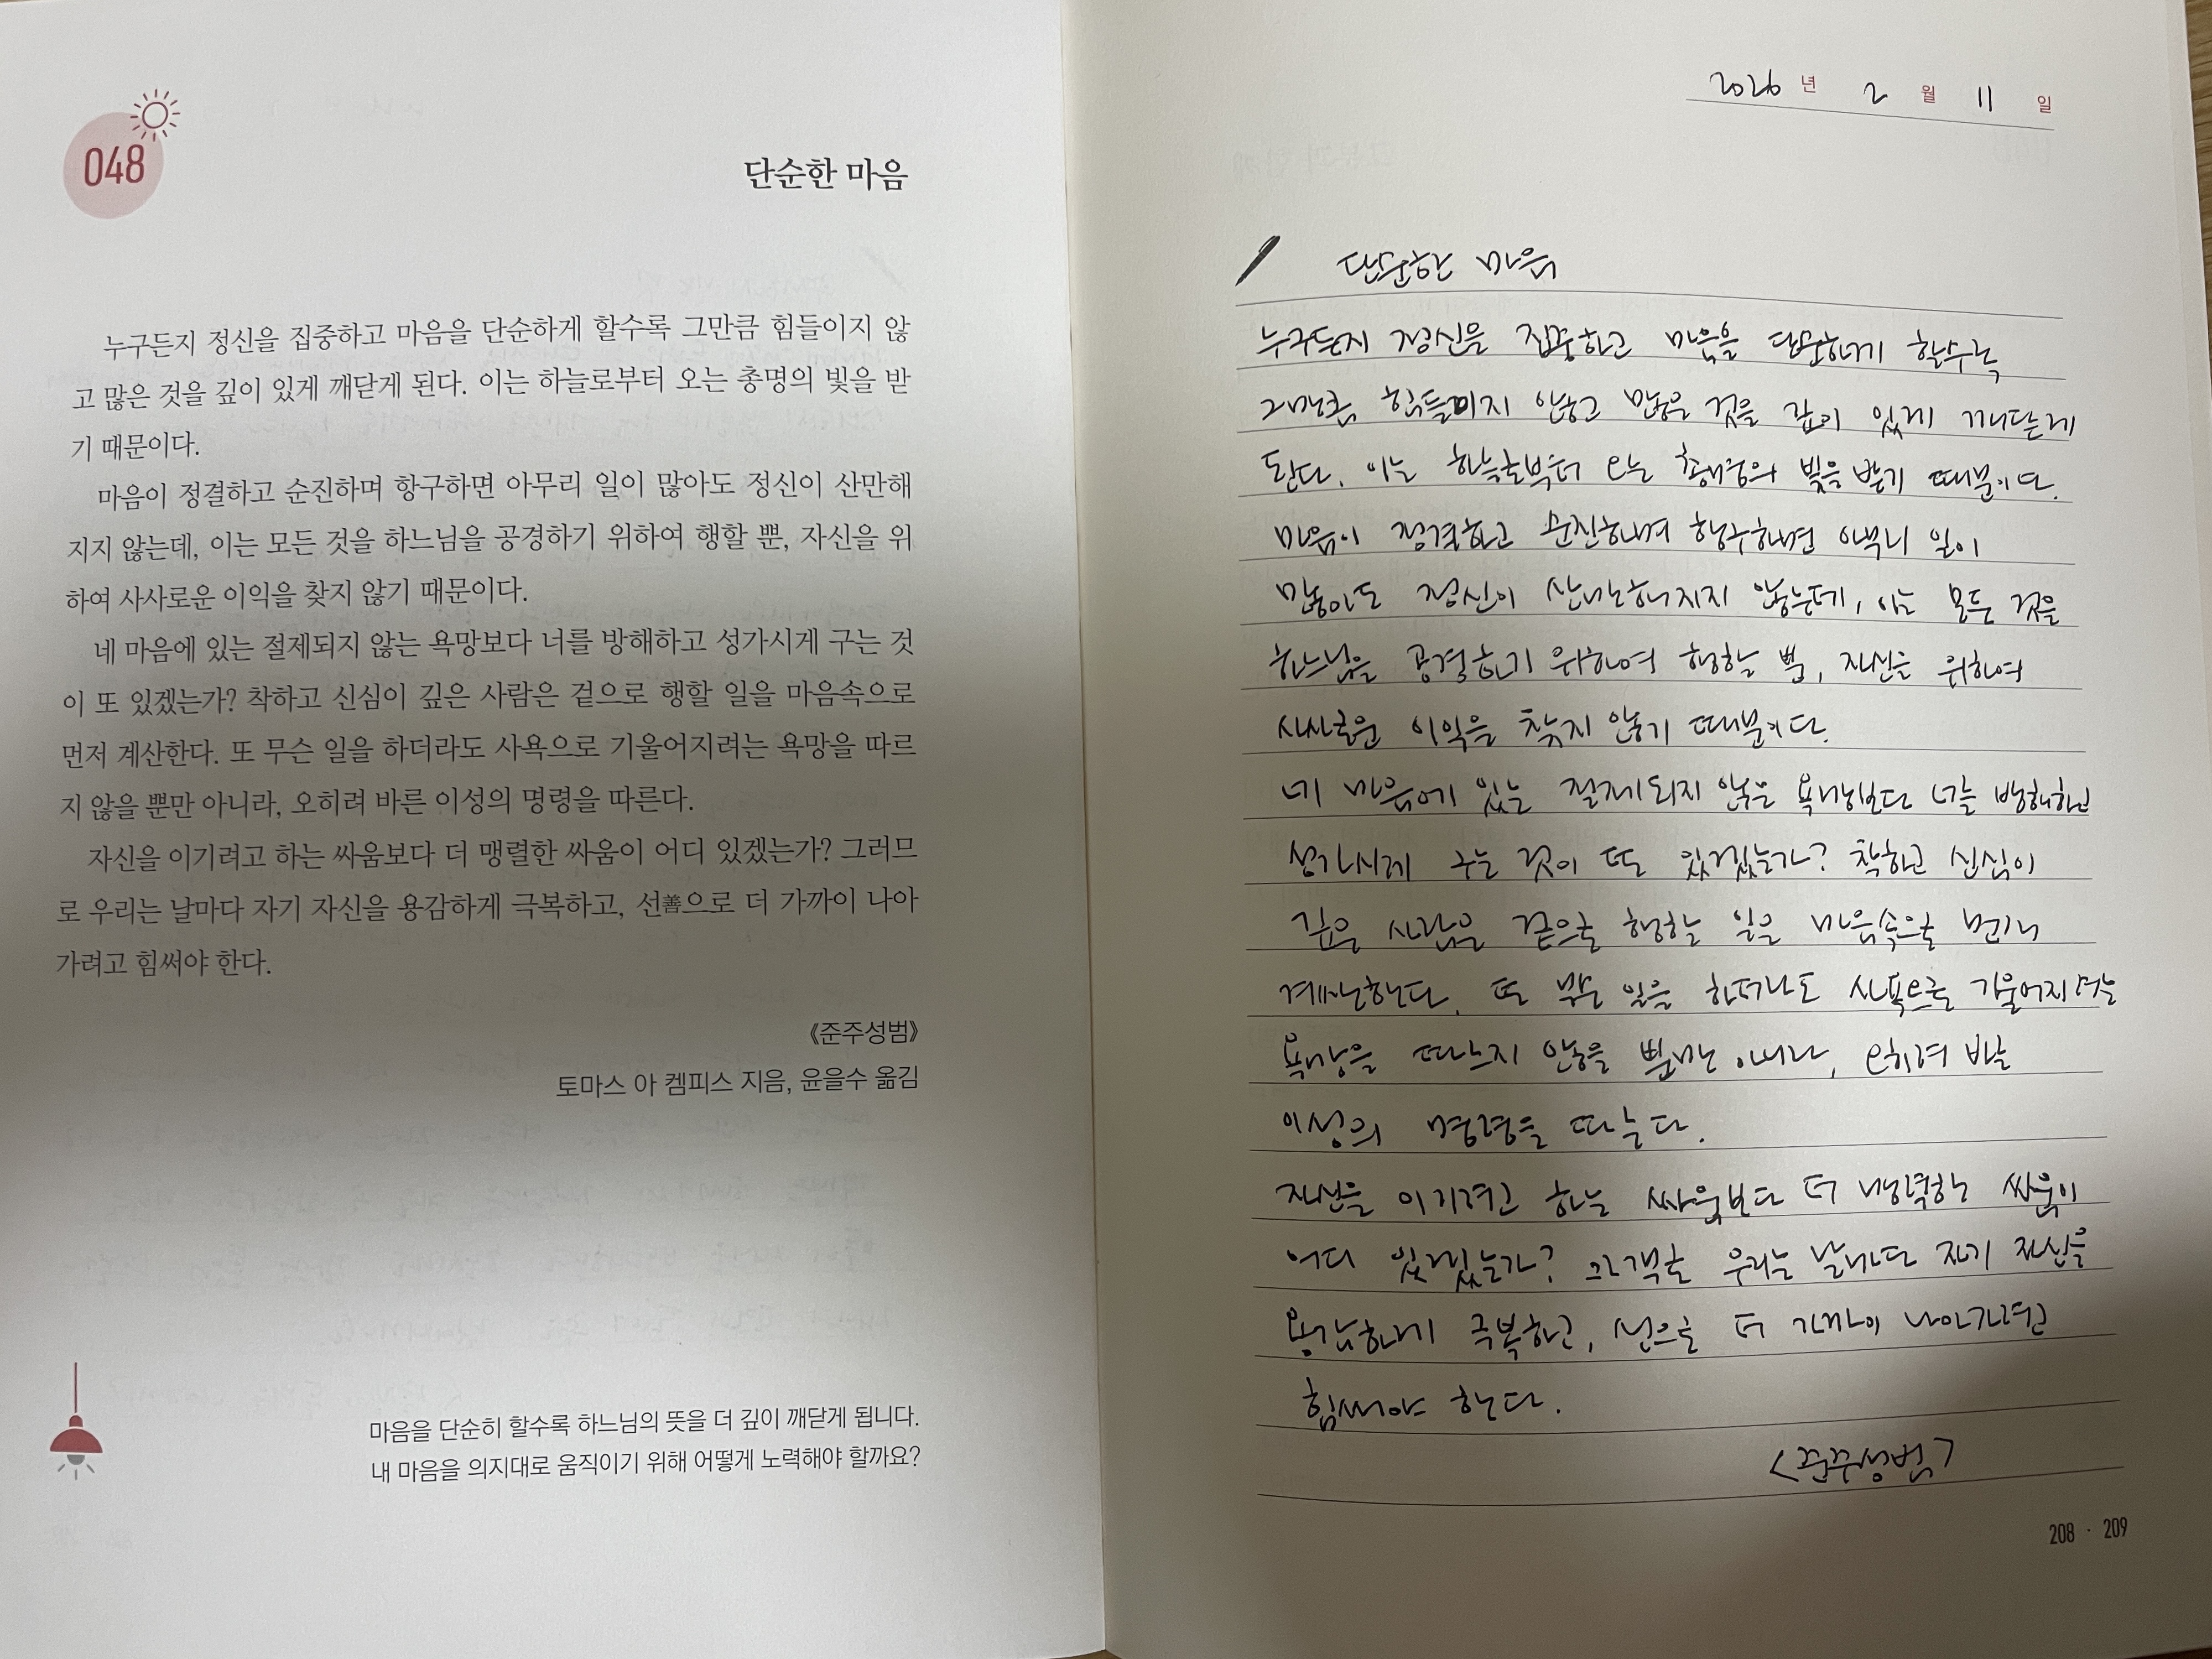 048
단순한 마음
누구든지 정신을 집중하고 마음을 단순하게 할수록 그만큼 힘들이지 않
고 많은 것을 깊이 있게 깨닫게 된다. 이는 하늘로부터 오는 총명의 빛을 받
기 때문이다.
마음이 정결하고 순진하며 항구하면 아무리 일이 많아도 정신이 산만해
지지 않는데, 이는 모든 것을 하느님을 공경하기 위하여 행할 뿐, 자신을 위
하여 사사로운 이익을 찾지 않기 때문이다.
네 마음에 있는 절제되지 않는 욕망보다 너를 방해하고 성가시게 구는 것
이 또 있겠는가? 착하고 신심이 깊은 사람은 겉으로 행할 일을 마음속으로
먼저 계산한다. 또 무슨 일을 하더라도 사욕으로 기울어지려는 욕망을 따르
지 않을 뿐만 아니라, 오히려 바른 이성의 명령을 따른다.
자신을 이기려고 하는 싸움보다 더 맹렬한 싸움이 어디 있겠는가? 그러므
로 우리는 날마다 자기 자신을 용감하게 극복하고, 선善으로 더 가까이 나아
가려고 힘써야 한다.
《준주성범》
토마스 아 켐피스 지음, 윤을수 옮김
마음을 단순히 할수록 하느님의 뜻을 더 깊이 깨닫게 됩니다.
내 마음을 의지대로 움직이기 위해 어떻게 노력해야 할까요?
2026 년 2 월 11 일
단순한 마음
누구든지 정신을 집중하고 마음을 단순하게 할수록
그만큼 힘들이지 않고 많은 것을 깊이 있게 깨닫게
된다. 이는 하늘로부터 오는 총명의 빛을 받기 때문이다.
마음이 정결하고 순진하며 항구하면 아무리 일이
많아도 정신이 산만해지지 않는데, 이는 모든 것을
하느님을 공경하기 위하여 행할 뿐, 자신을 위하여
사사로운 이익을 찾지 않기 때문이다.
네 마음에 있는 절제되지 않은 욕망보다 너를 방해하고
성가시게 구는 것이 또 있겠는가? 착하고 신심이
깊은 사람은 겉으로 행할 일을 마음속으로 먼저
계산한다. 또 무슨 일을 하더라도 사욕으로 기울어지려는
욕망을 따르지 않을 뿐만 아니라, 오히려 바른
이성의 명령을 따른다.
자신을 이기려고 하는 싸움보다 더 맹렬한 싸움이
어디 있겠는가? 그러므로 우리는 날마다 자기 자신을
용감하게 극복하고, 선으로 더 가까이 나아가려고
힘써야 한다.
<준주성범>
208 · 209